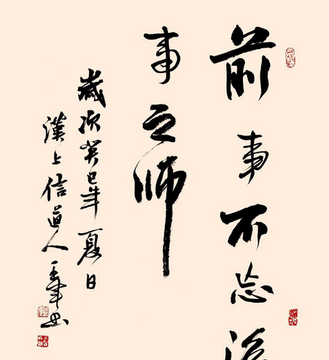 前事不忘后
事之师
岁次癸巳年夏日
汉上信道人
书